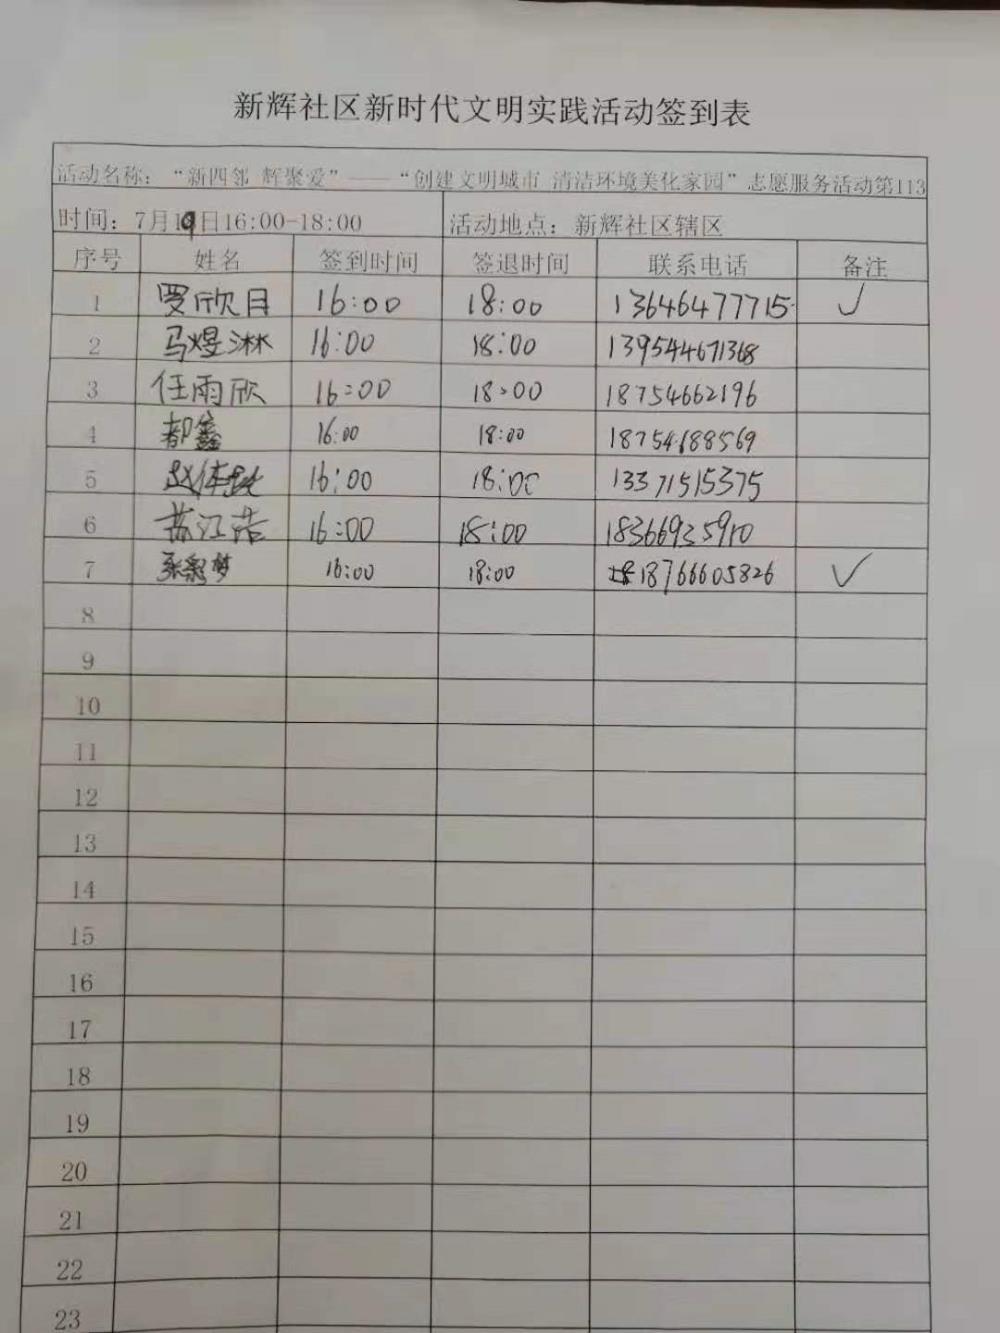 新辉社区新时代文明实践活动签到表
活动名称：“新四邻 辉聚爱”——“创建文明城市 清洁环境美化家园”志愿服务活动第113
时间：7月19日16:00-18:00 活动地点：新辉社区辖区
序号 姓名 签到时间 签退时间 联系电话 备注
1 罗欣月 16:00 18:00 13646477715 ✓
2 马煜淋 16:00 18:00 139544671368
3 任雨欣 16:00 18:00 18754662196
4 都鑫 16:00 18:00 18754688569
5 16:00 18:00 13371515375
6 苏江浩 16:00 18:00 18366935910
7 16:00 18:00 18766605826 ✓
8
9
10
11
12
13
14
15
16
17
18
19
20
21
22
23